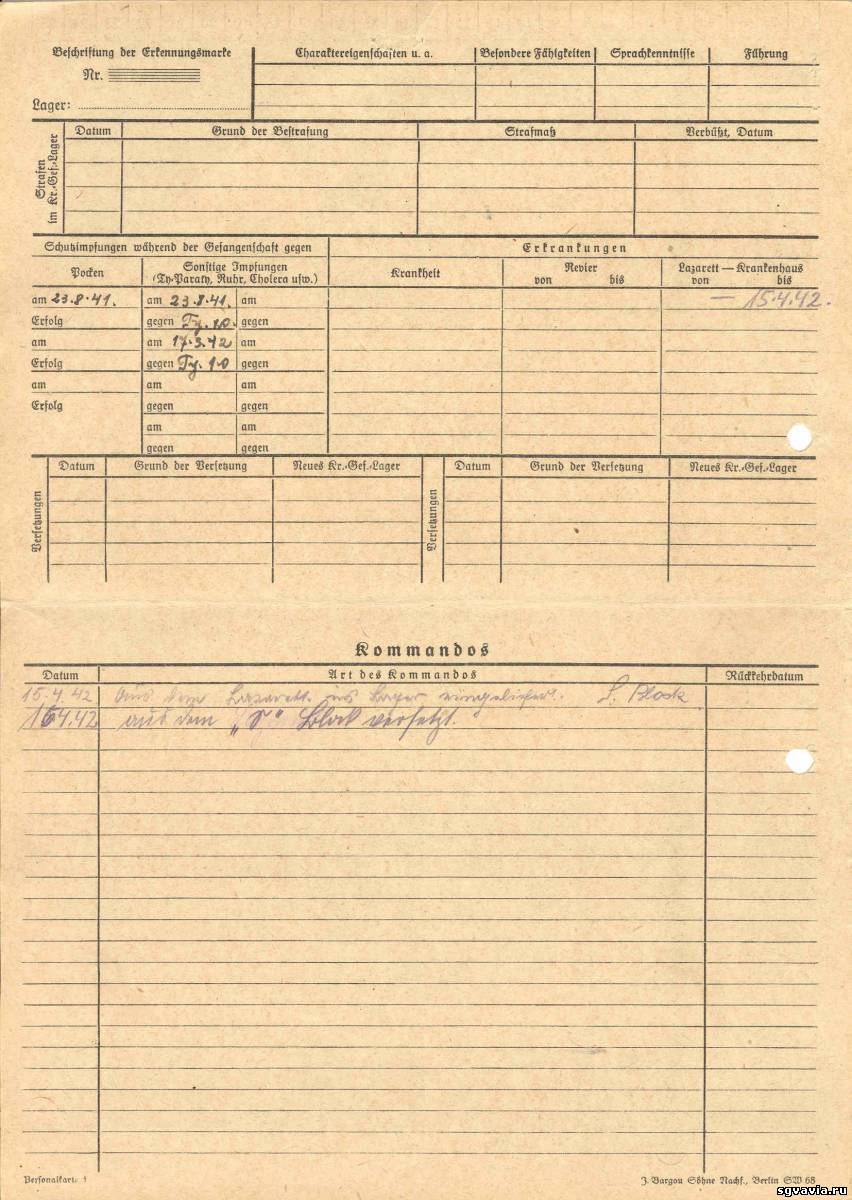 Beschriftung der Erkennungsmarke
Nr.
Lager:
Charaktereigenschaften u. a.
Besondere Fähigkeiten
Sprachkenntnisse
Führung
Strafen im Kr.-Gef.-Lager
Datum
Grund der Bestrafung
Strafmaß
Verbüßt, Datum
Schutzimpfungen während der Gefangenschaft gegen
Erkrankungen
Pocken
Sonstige Impfungen
(Ty-Paraty, Ruhr, Cholera usw.)
Krankheit
Revier
von bis
Lazarett — Krankenhaus
von bis
am 23.8.41. am 23.8.41. am
— 15.4.42.
Erfolg gegen Ty. 1.0. gegen
am am 17.3.42 am
Erfolg gegen Ty. 1.0 gegen
am am am
Erfolg gegen gegen
am am
gegen gegen
Versetzungen
Datum Grund der Versetzung Neues Kr.-Gef.-Lager
Versetzungen
Datum Grund der Versetzung Neues Kr.-Gef.-Lager
Kommandos
Datum Art des Kommandos Rückkehrdatum
15.4.42 Aus dem Lazarett ins Lager eingeliefert. Block
16.4.42 aus dem Block versetzt.
Personalkarte 1
J. Bargou Söhne Nachf., Berlin SW 68
sgvavia.ru